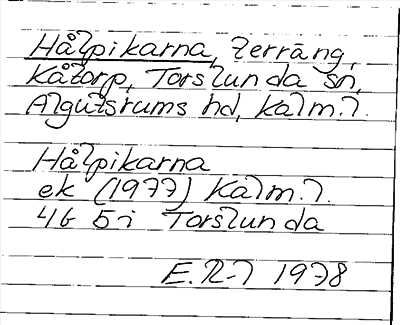 Hålpikarna, terräng,
Kåtorp, Torslunda sn,
Algutsrums hd, Kalm.l.
Hålpikarna
ek (1977) Kalm.l.
4G 5i Torslunda
E.R-l 1978